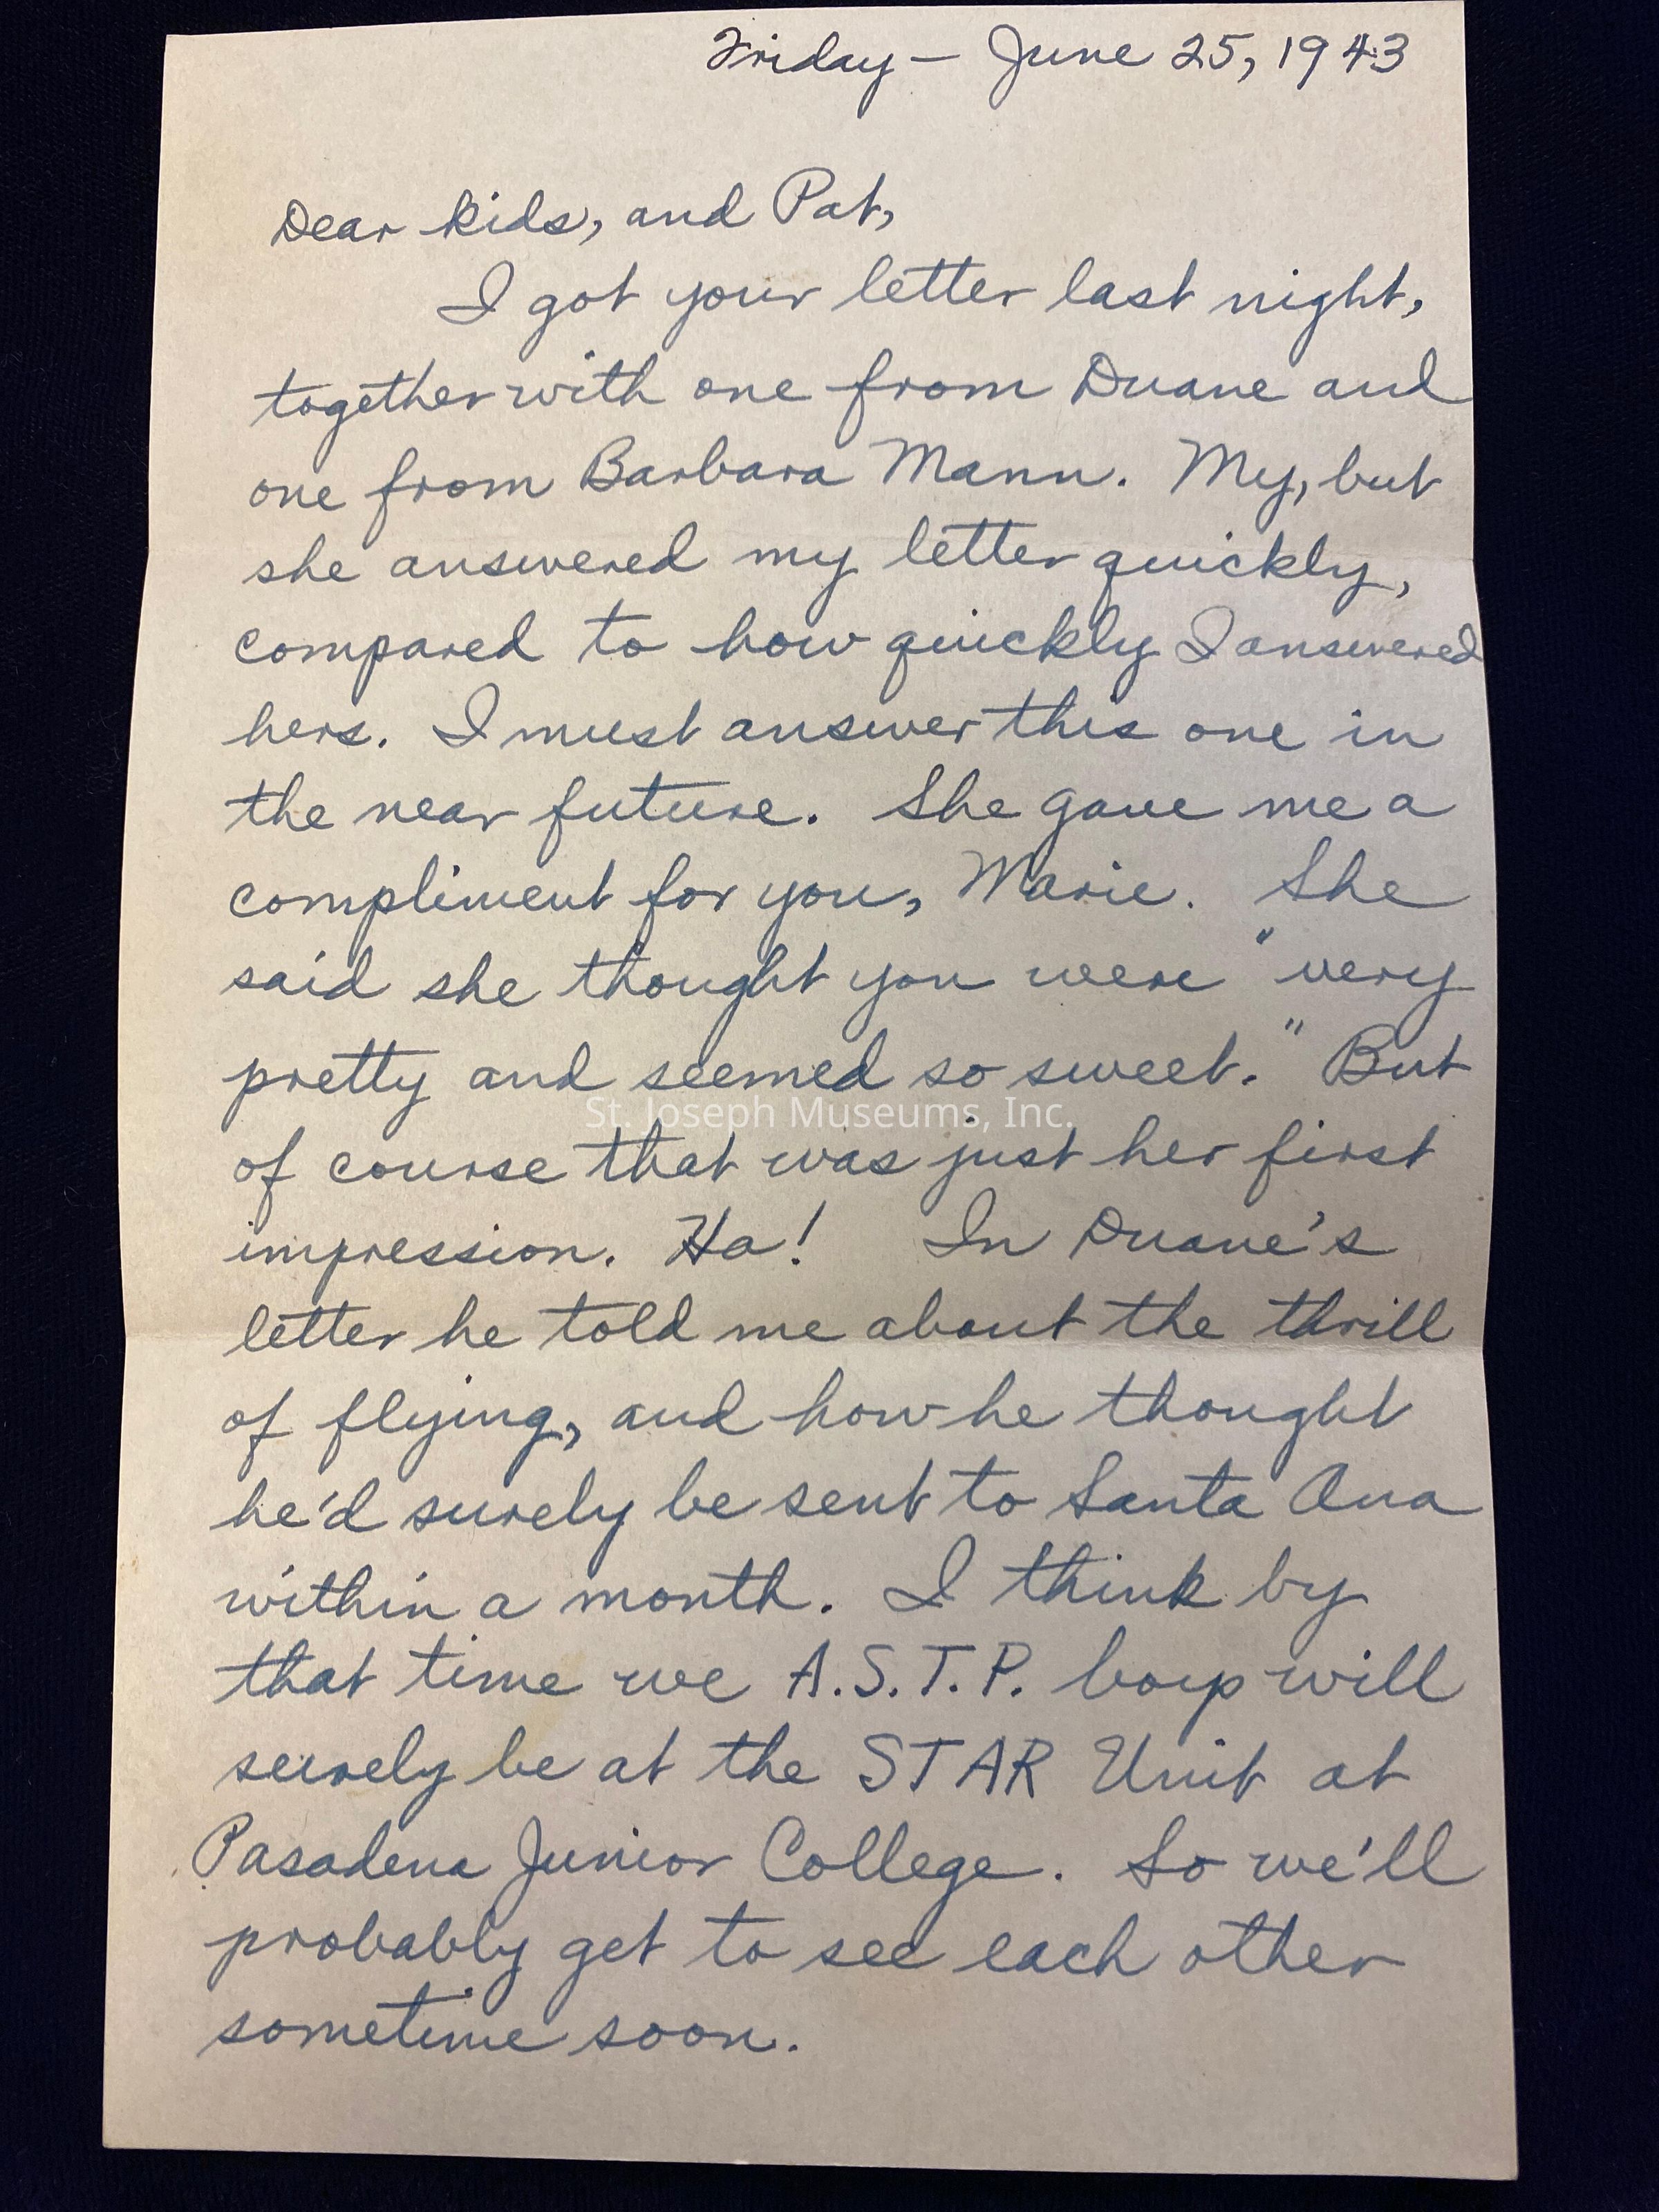 Friday — June 25, 1943
Dear kids, and Pat,
I got your letter last night,
together with one from Duane and
one from Barbara Mann. My, but
she answered my letter quickly,
compared to how quickly I answered
hers. I must answer this one in
the near future. She gave me a
compliment for you, Marie. She
said she thought you were "very
pretty and seemed so sweet." But
St. Joseph Museums, Inc.
of course that was just her first
impression. Ha! In Duane's
letter he told me about the thrill
of flying, and how he thought
he'd surely be sent to Santa Ana
within a month. I think by
that time we A.S.T.P. boys will
surely be at the STAR Unit at
Pasadena Junior College. So we'll
probably get to see each other
sometime soon.